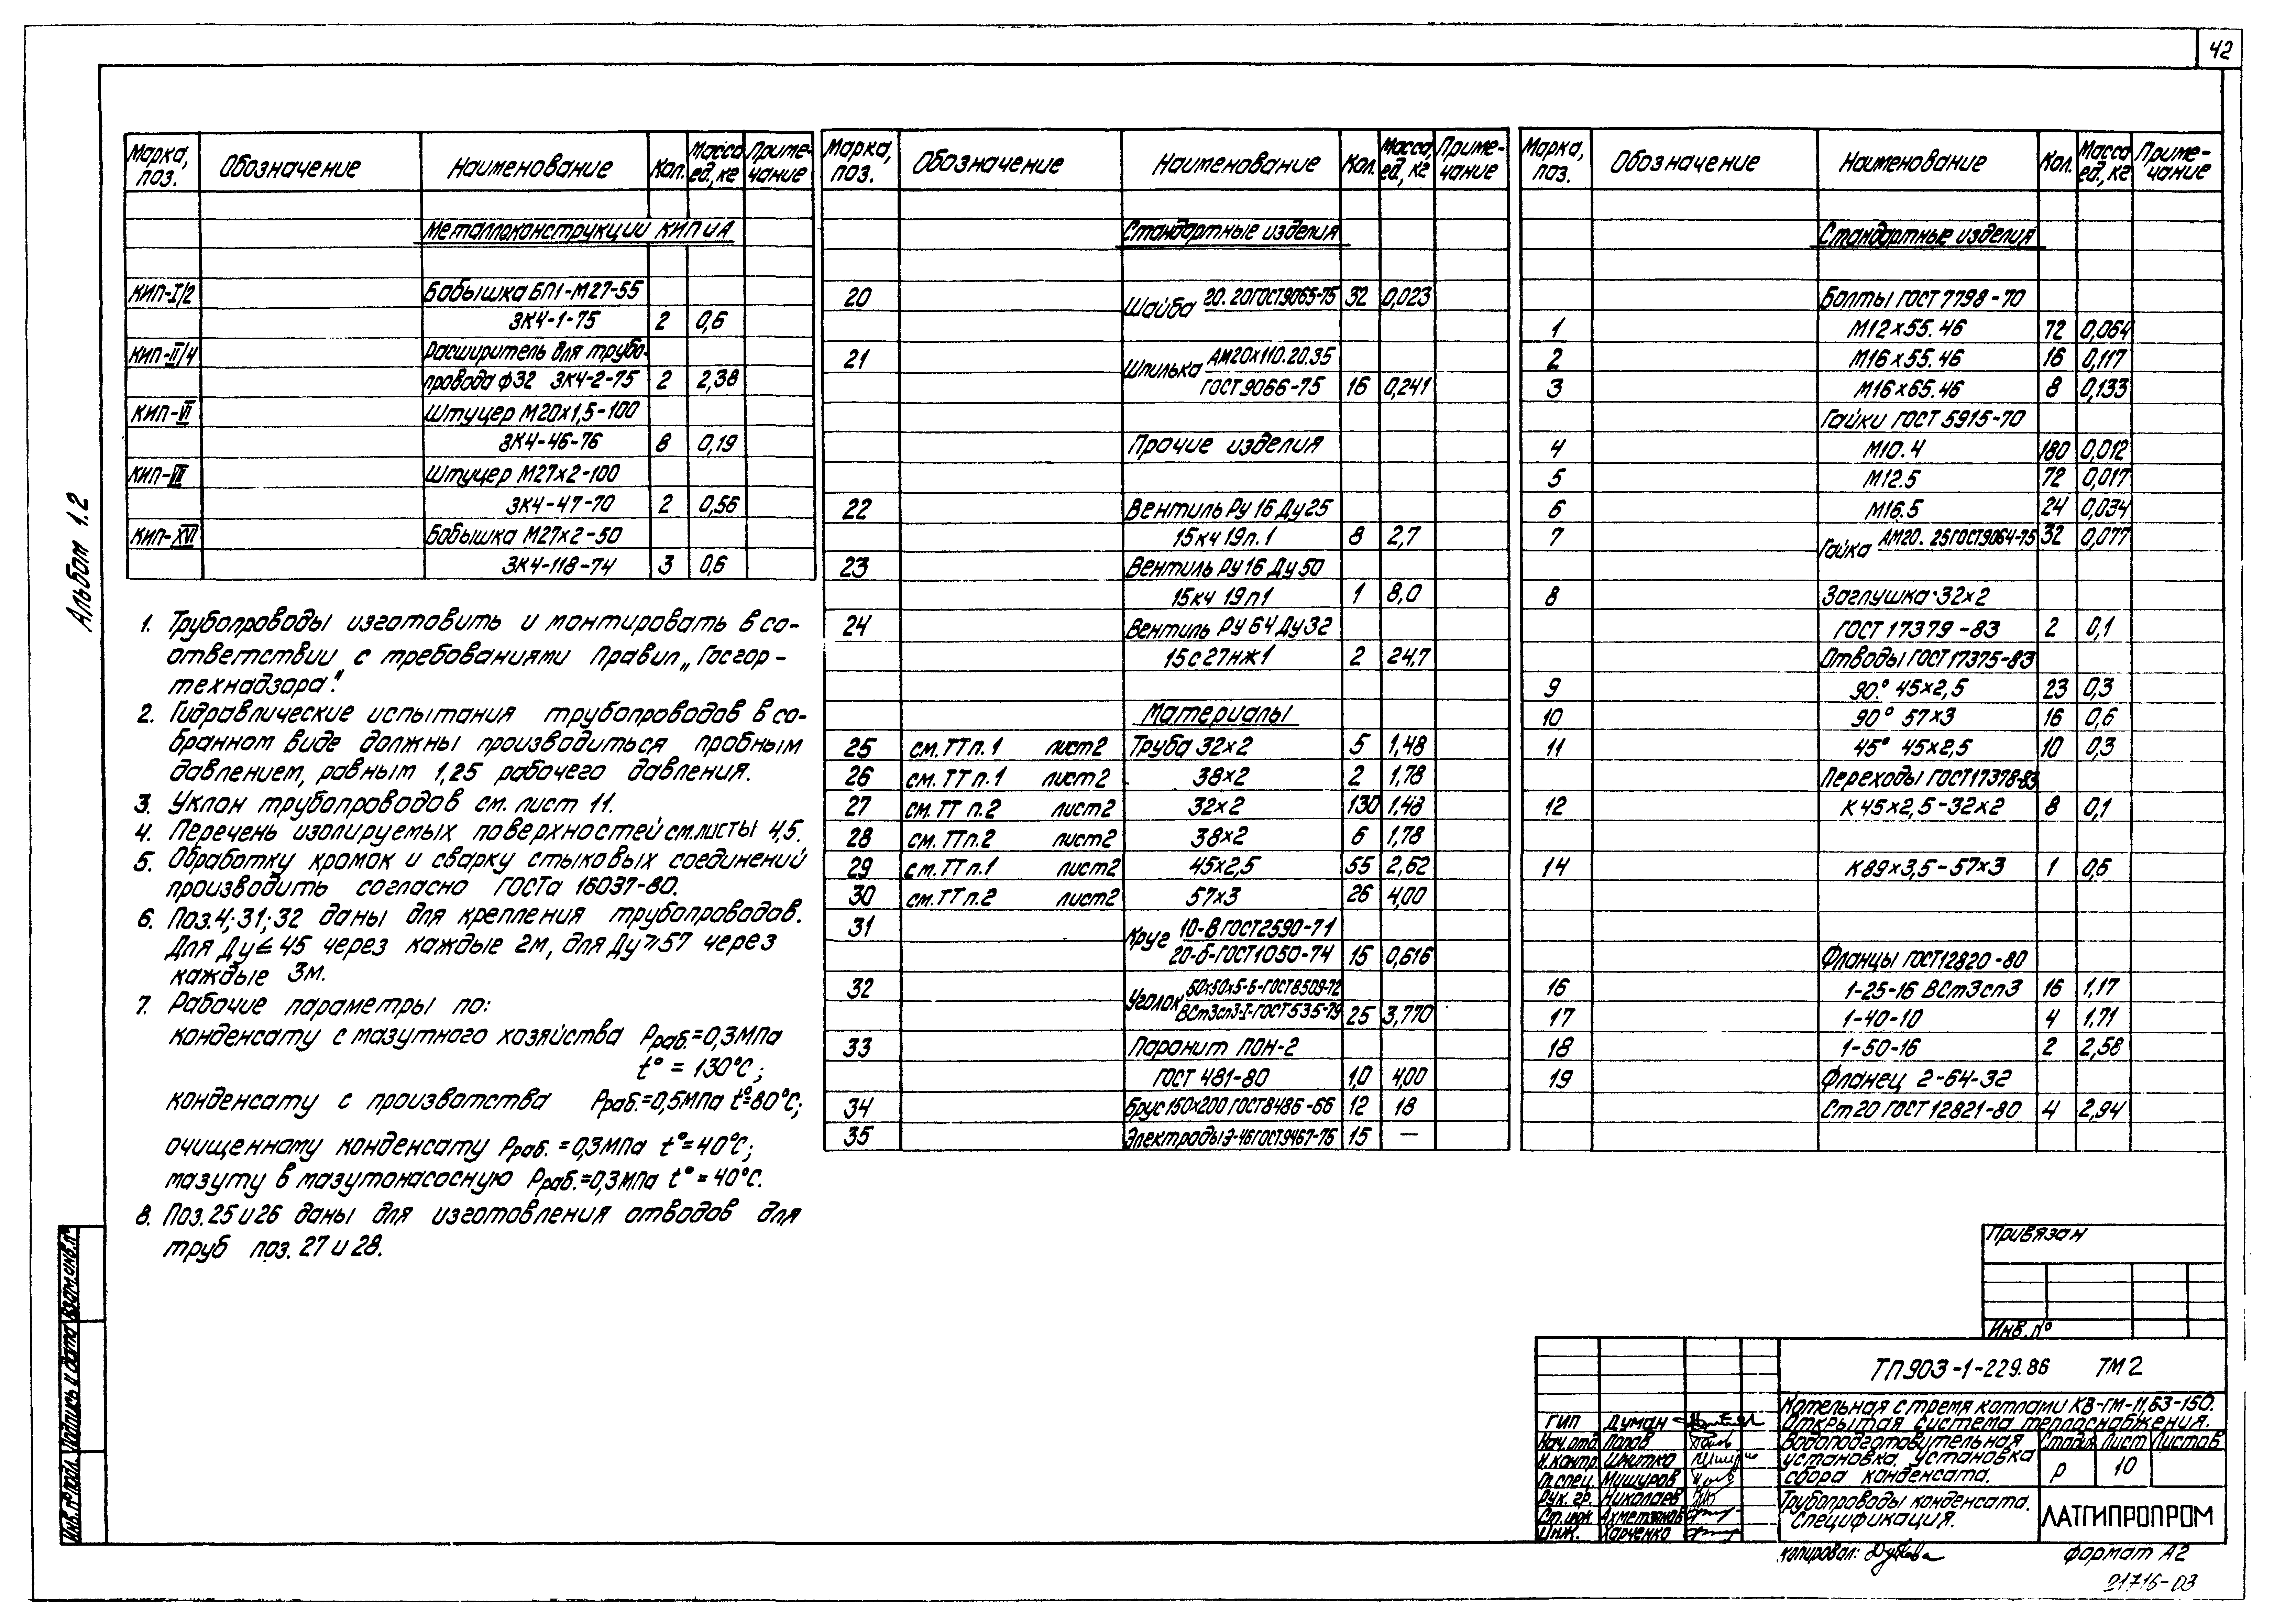 42
Альбом 1.2
Марка, поз. Обозначение Наименование Кол. Масса ед., кг Примечание
Металлоконструкции КИПиА
КИП-I/2 Бобышка БП1-М27-55
ЗК4-1-75 2 0,6
КИП-II/4 Расширитель для трубо-
провода ф32 ЗК4-2-75 2 2,38
КИП-VI Штуцер М20х1,5-100
ЗК4-46-76 8 0,19
КИП-VII Штуцер М27х2-100
ЗК4-47-70 2 0,56
КИП-XVI Бобышка М27х2-50
ЗК4-118-74 3 0,6
1. Трубопроводы изготовить и монтировать в со-
ответствии с требованиями Правил „Госгор-
технадзора".
2. Гидравлические испытания трубопроводов в со-
бранном виде должны производиться пробным
давлением, равным 1,25 рабочего давления.
3. Уклон трубопроводов см. лист 11.
4. Перечень изолируемых поверхностей см.листы 4,5.
5. Обработку кромок и сварку стыковых соединений
производить согласно ГОСТа 16037-80.
6. Поз.4;31;32 даны для крепления трубопроводов.
Для Ду≤45 через каждые 2м, для Ду≥57 через
каждые 3м.
7. Рабочие параметры по:
конденсату с мазутного хозяйства Рраб.=0,3МПа
t° = 130°С;
конденсату с производства Рраб.=0,5МПа t°=80°С;
очищенному конденсату Рраб. =0,3МПа t°=40°С;
мазуту в мазутонасосную Рраб.=0,3МПа t°=40°С.
8. Поз.25и26 даны для изготовления отводов для
труб поз. 27 и 28.
Марка, поз. Обозначение Наименование Кол. Масса, ед., кг Примечание
Стандартные изделия
20 Шайба 20. 20ГОСТ9065-75 32 0,023
21 Шпилька АМ20х110.20.35
ГОСТ9066-75 16 0,241
Прочие изделия
22 Вентиль Ру 16 Ду25
15кч 19п.1 8 2,7
23 Вентиль Ру16 Ду50
15кч 19п1 1 8,0
24 Вентиль Ру 64 Ду32
15с27нж1 2 24,7
Материалы
25 см.ТТп.1 лист2 Труба 32х2 5 1,48
26 см.ТТп.1 лист2 38х2 2 1,78
27 см.ТТ п.2 лист2 32х2 130 1.48
28 см.ТТп.2 лист2 38х2 6 1,78
29 см.ТТп.1 лист2 45х2,5 55 2,62
30 см.ТТп.2 лист2 57х3 26 4,00
31 Круг 10-В ГОСТ2590-71
20-б-ГОСТ1050-74 15 0,616
32 Уголок 50х50х5-Б-ГОСТ8509-72
ВСт3сп3-I-ГОСТ535-79 25 3,770
33 Паронит ПОН-2
ГОСТ 481-80 1,0 4,00
34 Брус 150х200 ГОСТ8486-66 12 18
35 Электроды Э-46ГОСТ9467-75 15 —
Марка, поз. Обозначение Наименование Кол. Масса ед., кг Примечание
Стандартные изделия
Болты ГОСТ 7798-70
1 М12х55.46 72 0,064
2 М16х55.46 16 0,117
3 М16х65.46 8 0,133
Гайки ГОСТ 5915-70
4 М10.4 180 0,012
5 М12.5 72 0,017
6 М16.5 24 0,034
7 Гайка АМ20. 25ГОСТ9064-75 32 0,077
8 Заглушка 32х2
ГОСТ 17379-83 2 0,1
Отводы ГОСТ17375-83
9 90° 45х2,5 23 0,3
10 90° 57х3 16 0,6
11 45° 45х2,5 10 0,3
Переходы ГОСТ17378-83
12 К45х2,5-32х2 8 0,1
14 К89х3,5-57х3 1 0,6
Фланцы ГОСТ12820-80
16 1-25-16 ВСт3сп3 16 1,17
17 1-40-10 4 1,71
18 1-50-16 2 2,58
19 Фланец 2-64-32
Ст20 ГОСТ12821-80 4 2,94
Привязан
Инв.№
ТП903-1-229.86 ТМ2
Котельная с тремя котлами КВ-ГМ-11,63-150.
Открытая система теплоснабжения.
ГИП Думан
Нач.отд. Попов
Н.контр Шнитко
Гл.спец. Мишуров
Рук. гр. Николаев
Ст.инж. Ахметзянов
Инж. Харченко
Водоподготовительная
установка. Установка
сбора конденсата.
Стадия Лист Листов
Р 10
Трубопроводы конденсата.
Спецификация.
ЛАТГИПРОПРОМ
Копировал:
Формат А2
21716-03
Инв.№подл. Подпись и дата Взам.инв.№